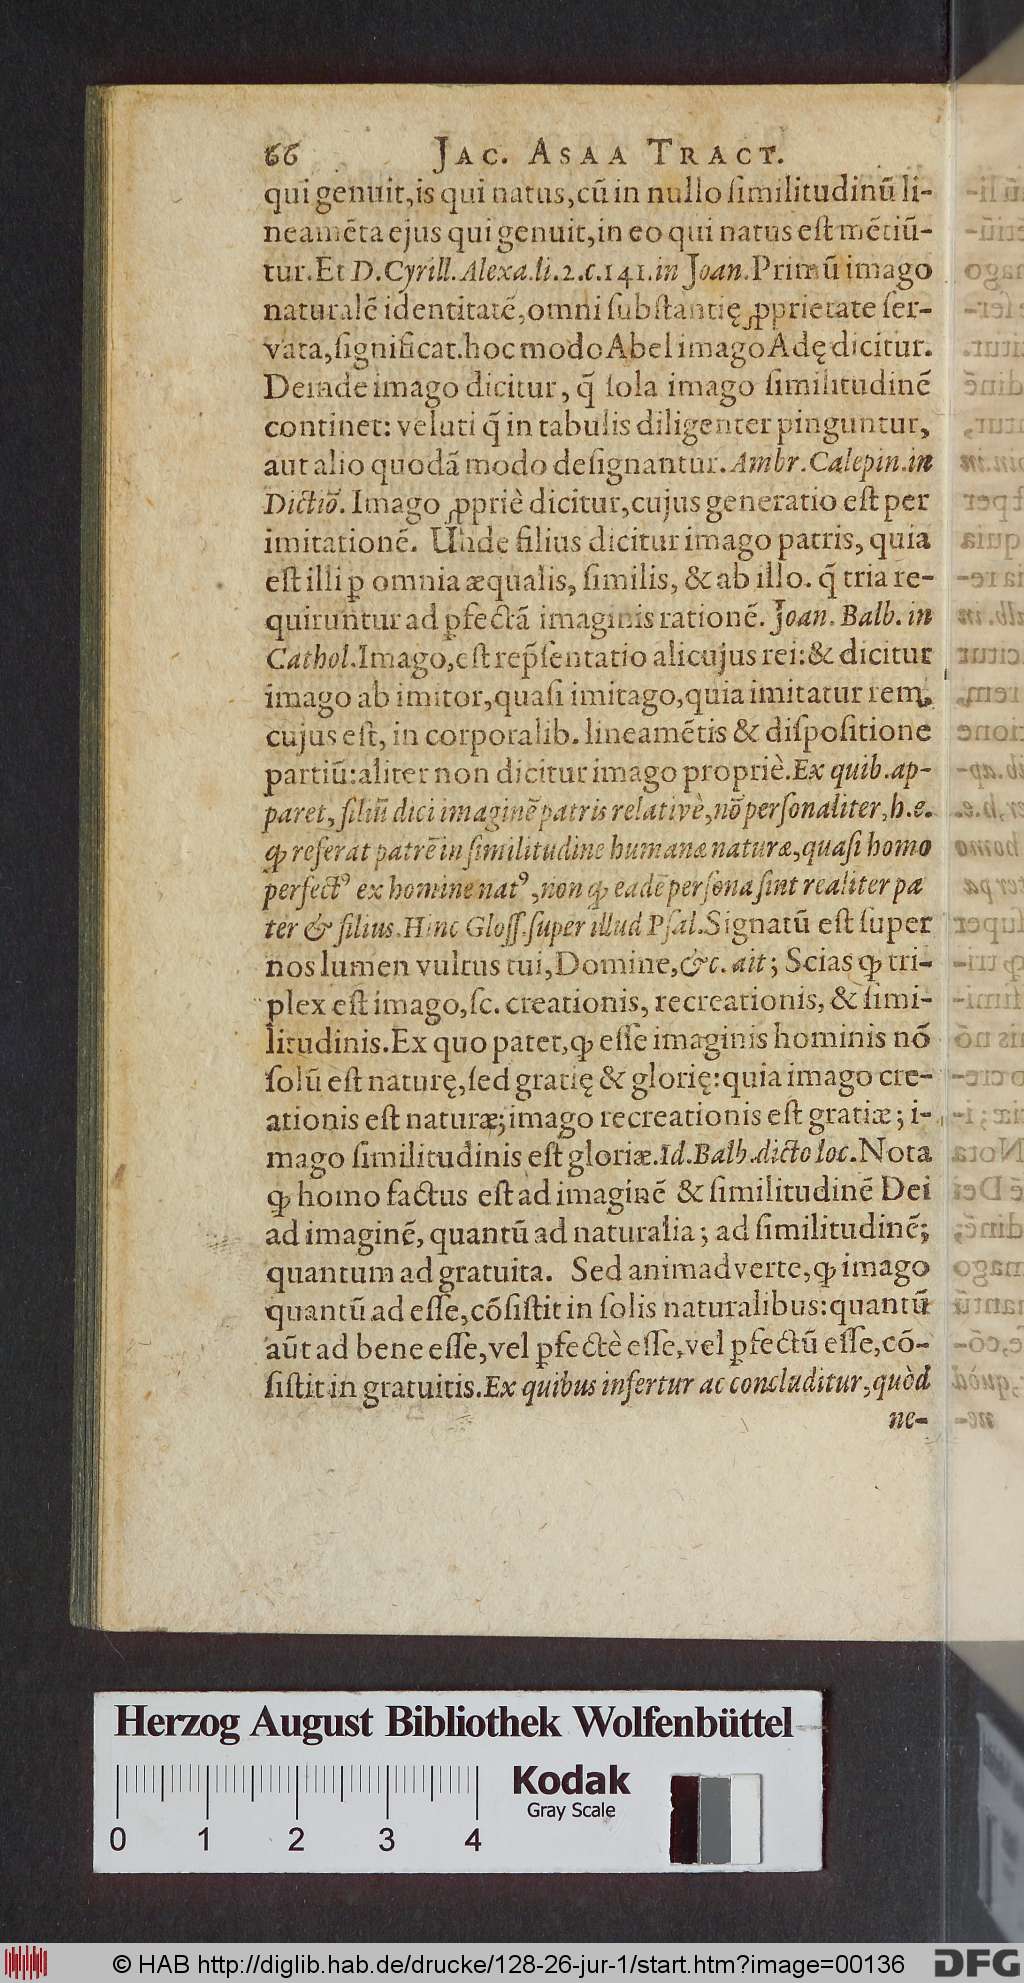 66 JAC. ASAA TRACT.
qui genuit, is qui natus, cũ in nullo ſimilitudinũ li-
neamẽta ejus qui genuit, in eo qui natus eſt mẽtiũ-
tur. Et D. Cyrill. Alexa. li. 2. c. 141. in Joan. Primũ imago
naturalẽ identitatẽ, omni ſubſtantię ꝓprietate ſer-
vata, ſignificat. hoc modo Abel imago Adę dicitur.
Deinde imago dicitur, q̃ ſola imago ſimilitudinẽ
continet: veluti q̃ in tabulis diligenter pinguntur,
aut alio quodã modo deſignantur. Ambr. Calepin. in
Dictiõ. Imago ꝓpriè dicitur, cujus generatio eſt per
imitationẽ. Unde filius dicitur imago patris, quia
eſt illi ꝑ omnia æqualis, ſimilis, & ab illo. q̃ tria re-
quiruntur ad ꝑfectã imaginis rationẽ. Joan. Balb. in
Cathol. Imago, eſt rep̃ſentatio alicujus rei: & dicitur
imago ab imitor, quaſi imitago, quia imitatur rem,
cujus eſt, in corporalib. lineamẽtis & diſpoſitione
partiũ: aliter non dicitur imago propriè. Ex quib. ap-
paret, filiũ dici imaginẽ patris relativè, nõ perſonaliter, h. e.
ꝙ referat patrẽ in ſimilitudine humanæ naturæ, quaſi homo
perfectꝰ ex homine natꝰ, non ꝙ eadẽ perſona ſint realiter pa
ter & filius. Hinc Gloſſ. ſuper illud Pſal. Signatũ eſt ſuper
nos lumen vultus tui, Domine, &c. ait; Scias ꝙ tri-
plex eſt imago, ſc. creationis, recreationis, & ſimi-
litudinis. Ex quo patet, ꝙ eſſe imaginis hominis nõ
ſolũ eſt naturę, ſed gratię & glorię: quia imago cre-
ationis eſt naturæ; imago recreationis eſt gratiæ; i-
mago ſimilitudinis eſt gloriæ. Id. Balb. dicto loc. Nota
ꝙ homo factus eſt ad imaginẽ & ſimilitudinẽ Dei
ad imaginẽ, quantũ ad naturalia; ad ſimilitudinẽ;
quantum ad gratuita. Sed animadverte, ꝙ imago
quantũ ad eſſe, cõſiſtit in ſolis naturalibus: quantũ
aũt ad bene eſſe, vel ꝑfectè eſſe, vel ꝑfectũ eſſe, cõ-
ſiſtit in gratuitis. Ex quibus infertur ac concluditur, quòd
ne-
Herzog August Bibliothek Wolfenbüttel
Kodak
Gray Scale
0 1 2 3 4
© HAB http://diglib.hab.de/drucke/128-26-jur-1/start.htm?image=00136 DFG